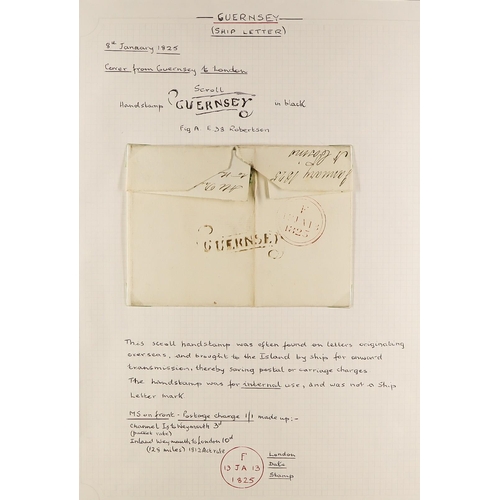 GUERNSEY
(SHIP LETTER)
8th January 1825
Cover from Guernsey to London
Scroll
Handstamp GUERNSEY in black
Fig A E 38 Robertson
January 1825
GUERNSEY
F
1825
This scroll handstamp was often found on letters originating
overseas, and brought to the Island by ship for onward
transmission, thereby saving postal or carriage charges
The handstamp was for internal use, and was not a Ship
Letter mark
MS on front - Postage charge 1/1 made up:-
Channel Is to Weymouth 3d
(packet rate)
Inland Weymouth to London 10d
(128 miles) 1812 Act rate
F
13 JA 13
1825
London
Date
Stamp